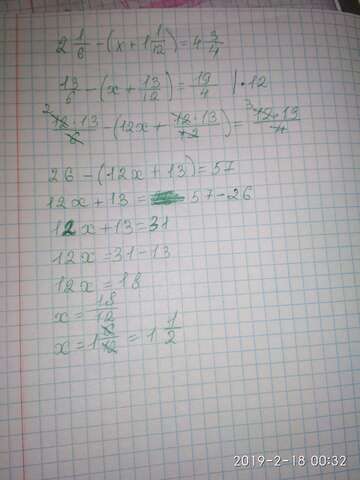 2 1/6 - (x + 1 1/12) = 4 3/4
13/6 - (x + 13/12) = 19/4 | · 12
2 12·13/6 - (12x + 12·13/12) = 3 12·19/4
26 - (12x + 13) = 57
12x + 13 = 57 - 26
12x + 13 = 31
12x = 31 - 13
12x = 18
x = 18/12
x = 1 6/12 = 1 1/2
2019-2-18 00:32